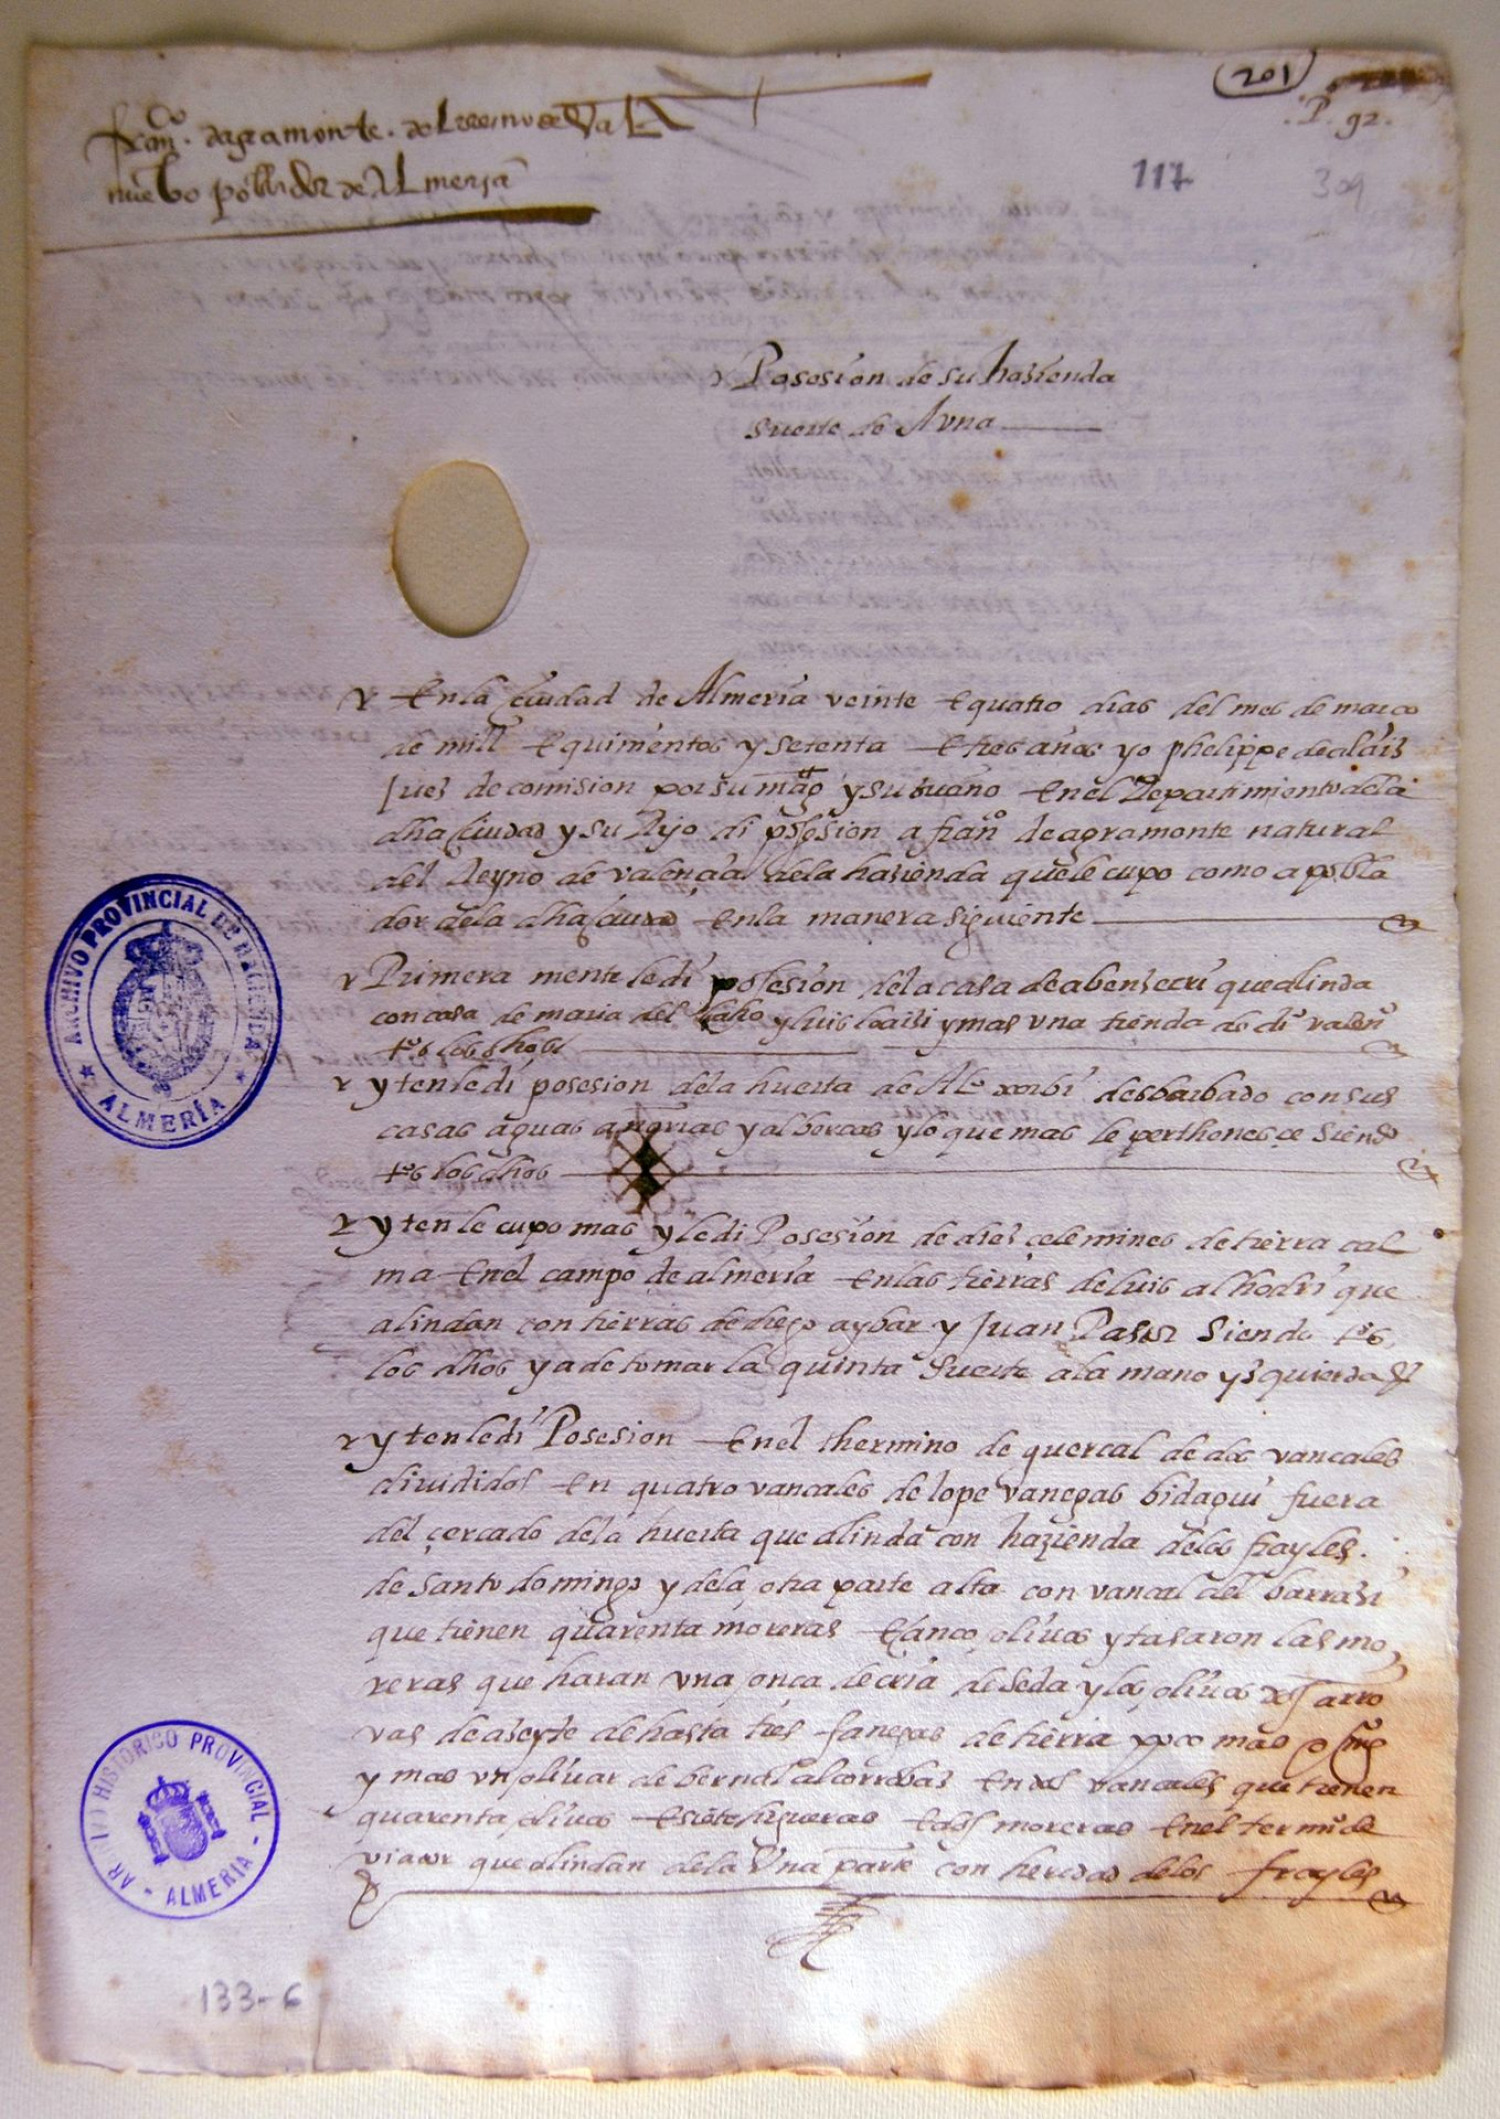 201
P. 92.
franco. dagramonte. del reeino de Val
nuebo pobblador de Almeria
117
309
Posesion de su hazienda
suerte de Avna
En la çiudad de Almeria veinte e quatro dias del mes de março
de mill e quinientos y setenta e tres años yo phelippe de
juez de comision por su magt y su En el Repartimiento de la
dha çiudad y su Rijo di posesion a franco de agramonte natural
del Reyno de valençia de la hazienda que le cupo como a pobla
dor de la dha çiudad En la manera siguiente
Primera mente le di posesion de la casa de que alinda
con casa de maria del y luis y mas vna tienda de
tos los dhos
yten le di posesion de la huerta de desbarbado con sus
casas aguas añorias y albercas y lo que mas le perthenesçe siendo
tos los dhos
yten le cupo mas y le di Posesion de diez çelemines de tierra cal
ma En el campo de almeria En las tierras de luis alhodri que
alindan con tierras de diego aybar y Juan siendo tos
los dhos y a de tomar la quinta suerte a la mano yzquierda
yten le di Posesion En el thermino de guercal de dos vancales
diuididos En quatro vancales de lope vanegas bidaqui fuera
del çercado de la huerta que alinda con hazienda de los frayles.
de santo domingo y de la otra parte alta con vancal del barrazi
que tienen quarenta moreras E çinco oliuos y tasaron las mo
reras que haran vna onça de cria de seda y los oliuos dos arro
vas de azeyte de hasta tres fanegas de tierra poco mas o ms
y mas vn oliuar de bernal alcorrobas En dos vancales que tienen
quarenta oliuos E siete higueras E dos moreras En el termno de
viator que alindan de la Vna parte con heredad de los frayles
ARCHIVO PROVINCIAL DE HACIENDA
ALMERÍA
HISTÓRICO PROVINCIAL
ALMERÍA
133-6